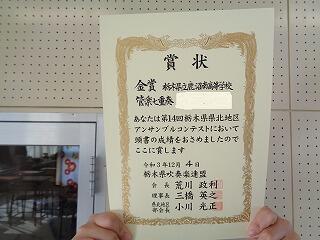 賞状
金賞 栃木県立鹿沼南高等学校
管楽七重奏
あなたは第14回栃木県県北地区
アンサンブルコンテストにおいて
頭書の成績をおさめましたので
ここに賞します
令和3年12月4日
栃木県吹奏楽連盟
会長 荒川政利
理事長 三橋英之
県北地区部会長 小川光正